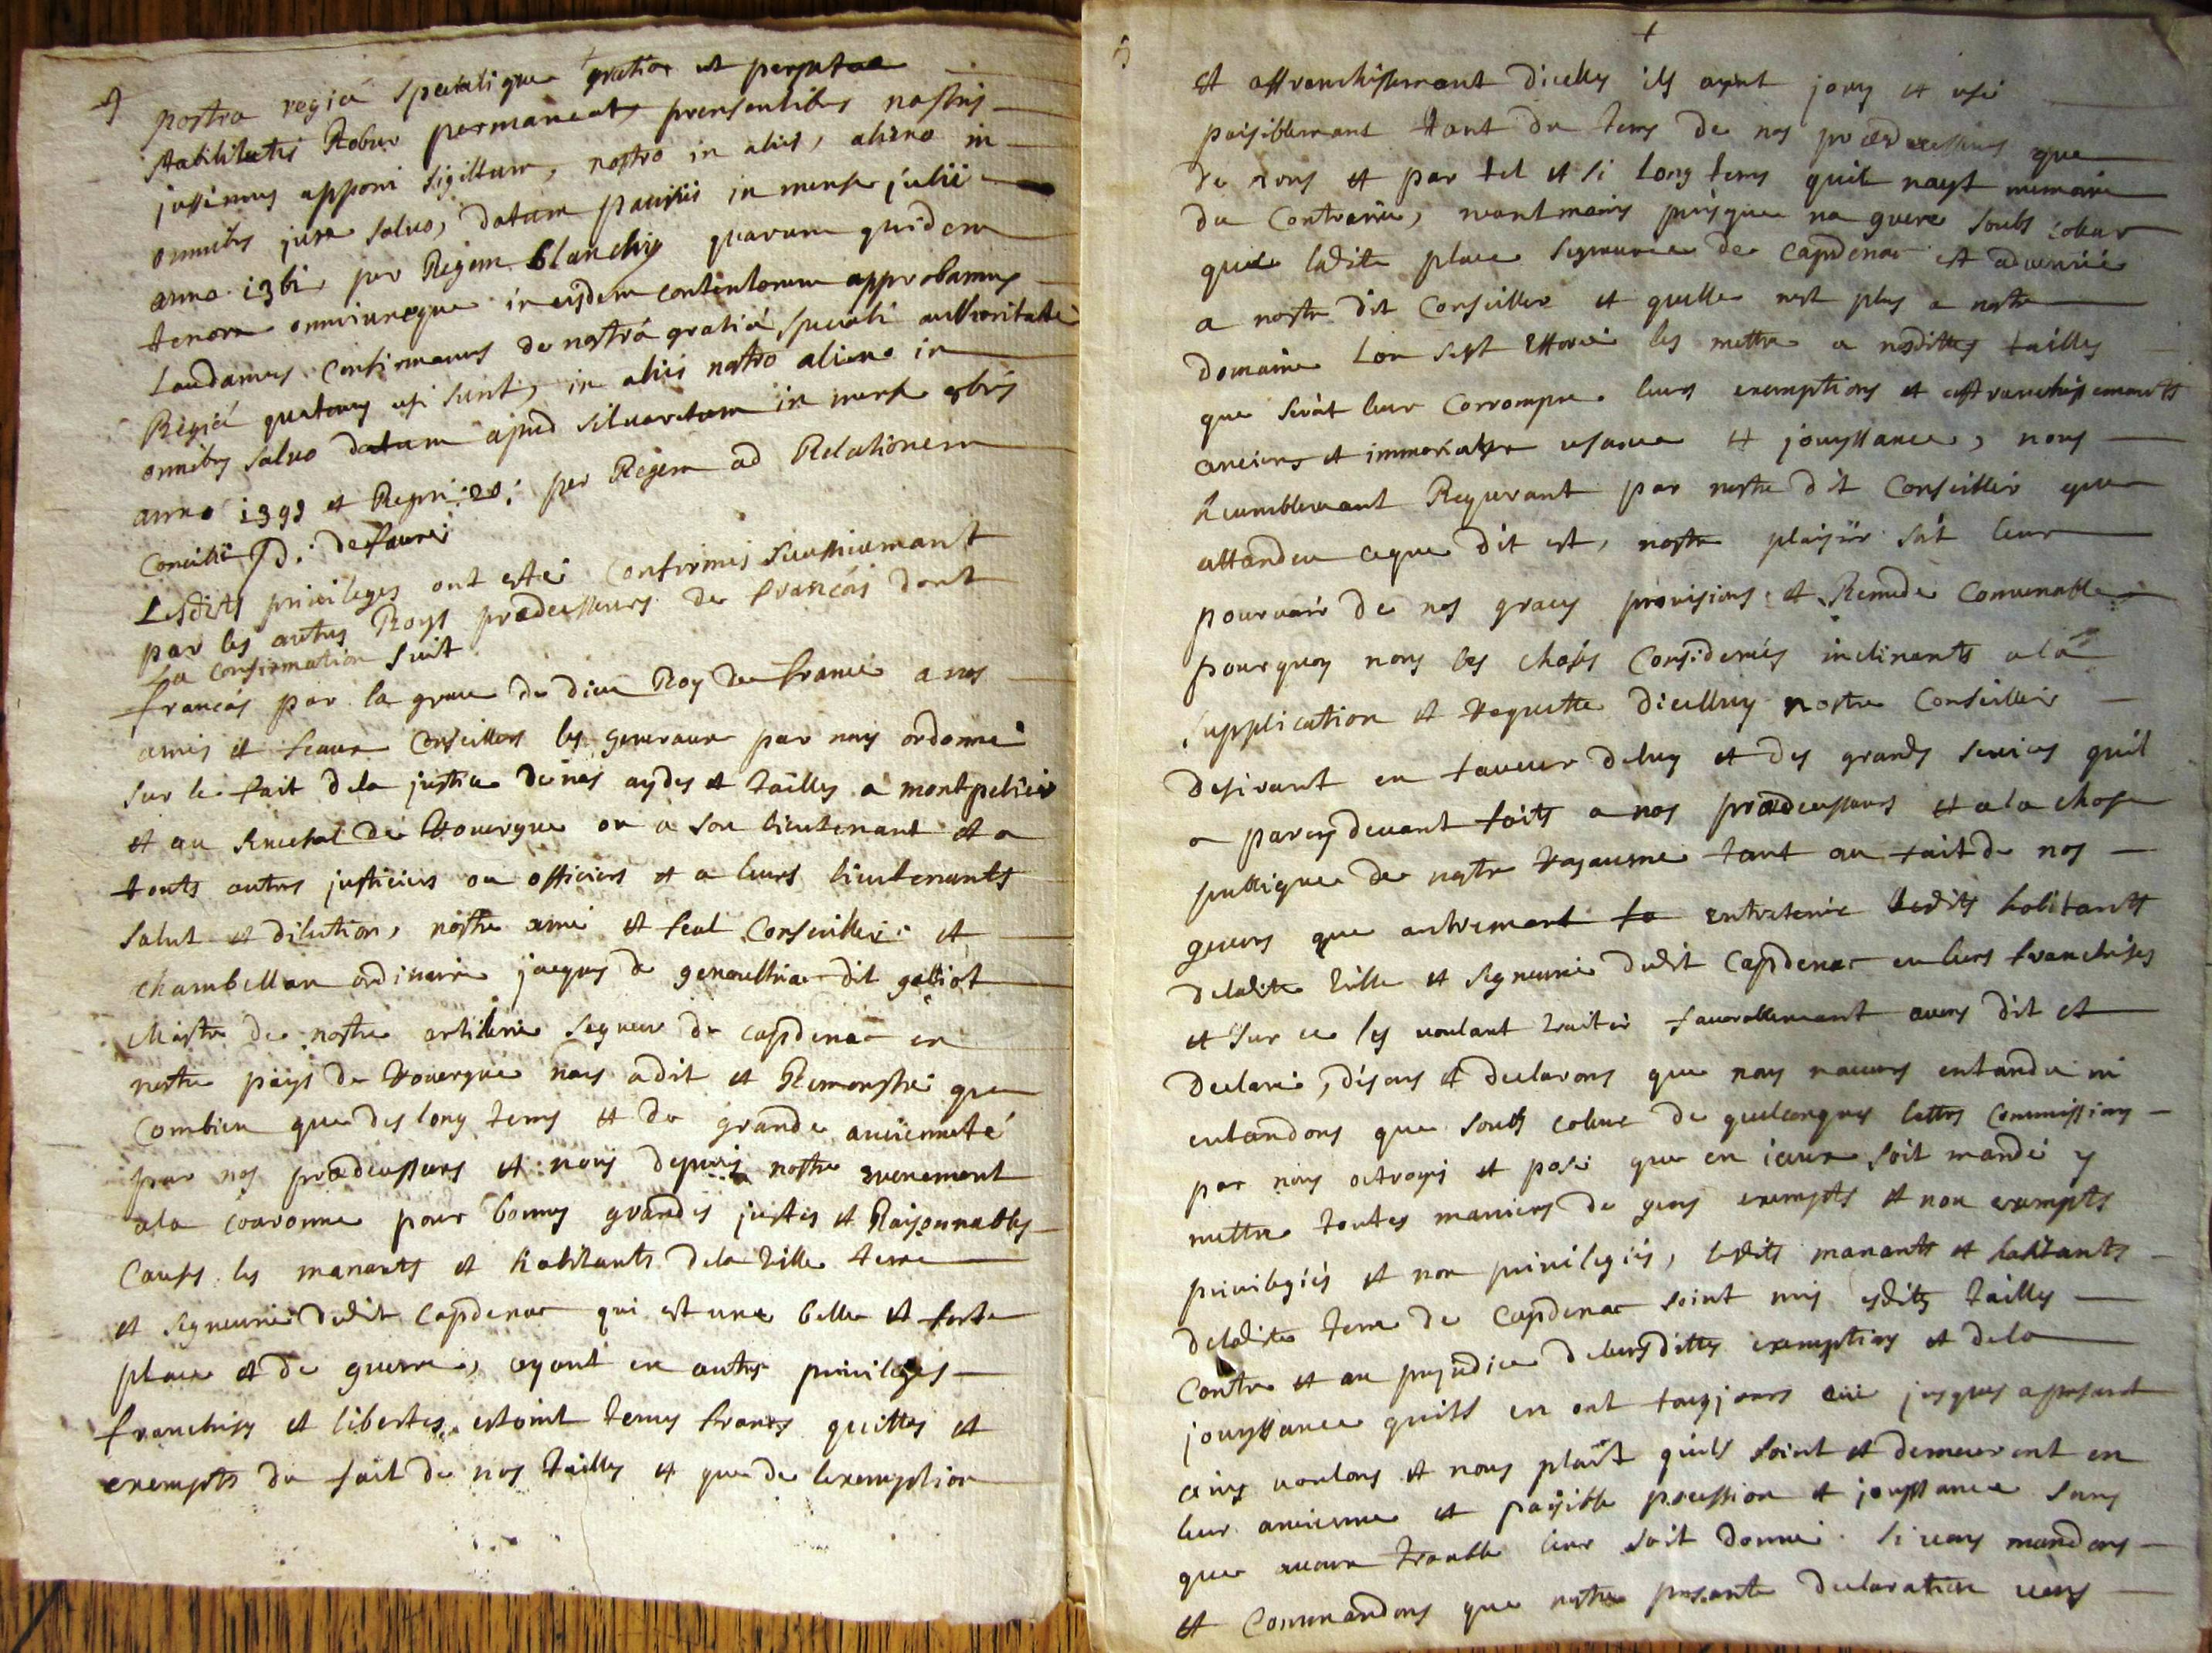 nostra regiâ specialique gratiâ ut perpetuae
stabilitatis Robur permaneat, praesentibus nostris
jussimus apponi sigillum, nostro in aliis, alieno in
omnibus jure salvo, datum parisiis in mense julii
anno 1361 per Regem blanchis quarum quidem
tenorem omniumque in eisdem contentorum approbamus
Laudamus confirmamus de nostrâ gratiâ speciali authoritate
Regiâ quatenus usi sunt, in aliis nostro alieno in
omnibus salvo datum apud silvanectum in mense 8bris
anno 1393 et Regni 20: per Regem ad Relationem
Concilii
Lesdits privileges ont estés confirmés
par les autres Roys prædecesseurs de francois dont
la confirmation suit
francois par la grace de dieu Roy de france a nos
amis et feaux Conseillers les generaux par nous ordonné
sur le fait dela justice de nos aydes et tailles a montpelier
et au senechal de Rouergue ou a son lieutenant et a
touts autres justiciers ou officiers et a leurs lieutenants
salut et dilection, nostre ame et feal Conseiller et
chambellan ordinaire jacques de genoulhac dit galiot
Maistre de nostre artilerie segneur de capdenac en
nostre païs de Rouergue nous adit et Remonstré que
combien que des long tems et de grande ancienneté
par nos prædecesseurs et nous depuis nostre avenement
ala couronne pour bonnes grandes justes et Raisonnables
causes les manants et habitants dela ville terre
et segneurie dudit capdenac qui est une belle et forte
place et de guerre, ayant en autres privileges
franchises et libertes estoint tenus francs quittes et
exempts du fait de nos tailles et que de lexemption
et affranchissement dicelles ils ayent jouy et usé
paisiblement tant du tems de nos prædecesseurs que
de nous et par tel et si long tems quil nayt memoire
du contraire, neantmoins puisque na guere soubs coleur
que ladite place segneurie de capdenac est advenüe
a nostre dit Conseiller et quelle nest plus a nostre
domaine Lon sest efforcé les mettre a nosdittes tailles
que seroit leur corrompre leurs exemptions et affranchissements
anciens et usance et jouyssance, nous
humblement Requerant par nostre dit Conseiller que
attandu ceque dit est, nostre plaisir soit leur
pourvoir de nos graces provisions et Remede Convenable
pourquoy nous les choses considerées inclinants ala
supplication et requette dicelluy nostre Conseiller
desirant en faveur deluy et des grands services quil
a parcy devant faits a nos prædecesseurs et ala chose
publique de nostre Royausme tant au fait de nos
guerres que autrement entretenir lesdits habitants
deladite ville et segneurie dudit capdenac en leurs franchises
et sur ce les voulant traiter favorablement avons dit et
declaré, disons et declarons que nous navons entandu ni
entandons que soubs coleur de quelconques lettres commissions
par nous octroyes et posé que en iceux soit mandé y
mettre toutes manieres de gens exempts et non exempts
privilegiés et non privilegiés, lesdits manants et habitants
deladite terre de capdenac soint mis esdites tailles
contre et au prejudice deleursdittes exemptions et dela
jouyssance quils en ont tousjours eüe jusques apresant
ains voulons et nous plaît quils soint et demeurent en
leur ancienne et paisible possession et jouyssance sans
que aucun trouble leur soit donné. si vous mandons
et commandons que nostre presante declaration vous